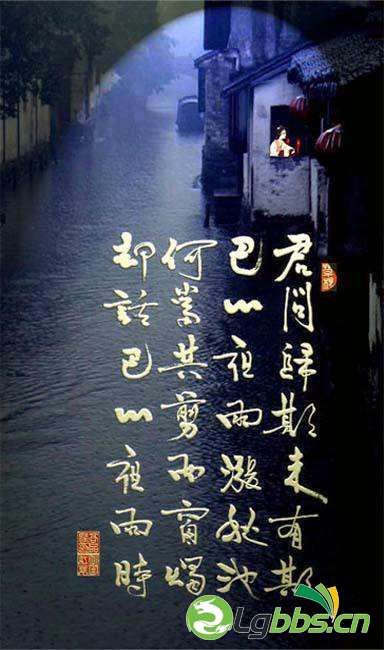 君問歸期未有期
巴山夜雨漲秋池
何當共剪西窗燭
却話巴山夜雨時
Lgbbs.cn